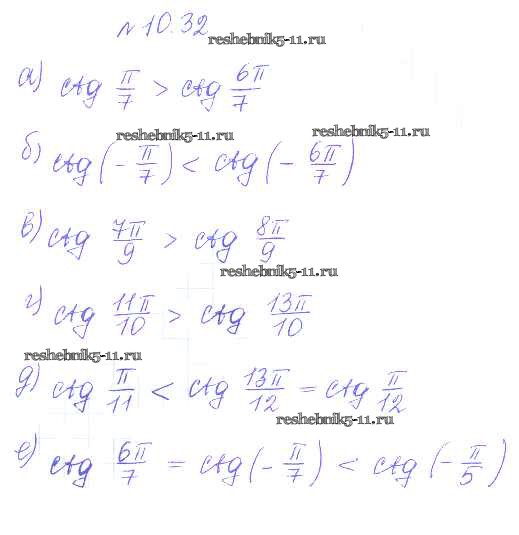 №10.32
reshebnik5-11.ru
а) ctg π/7 > ctg 6π/7
reshebnik5-11.ru reshebnik5-11.ru
б) ctg(-π/7) < ctg(-6π/7)
в) ctg 7π/9 > ctg 8π/9
reshebnik5-11.ru
г) ctg 11π/10 > ctg 13π/10
reshebnik5-11.ru
д) ctg π/11 < ctg 13π/12 = ctg π/12
reshebnik5-11.ru
е) ctg 6π/7 = ctg(-π/7) < ctg(-π/5)